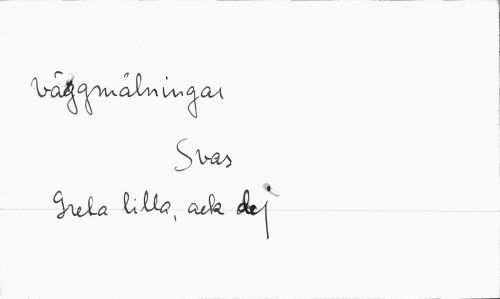 väggmålningar
Svas
Greta lilla, ack dej